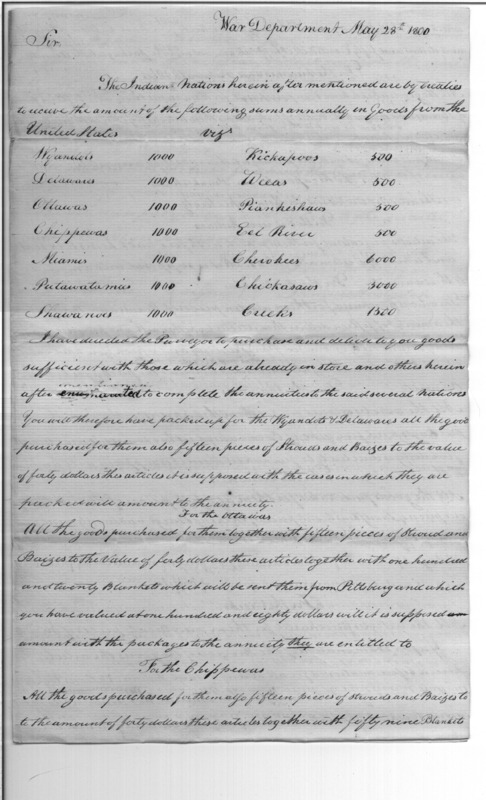 War Department May 28th 1800
Sir.
The Indian Nations herein after mentioned are by treaties
to receive the amount of the following sums annually in Goods from the
United States vizt
Wyandots 1000 Kickapoos 500
Delawares 1000 Weeas 500
Ottawas 1000 Piankishaws 500
Chippewas 1000 Eel River 500
Miamis 1000 Cherokees 6000
Putawatamias 1000 Chickasaws 3000
Shawanoes 1000 Creeks 1500
I have directed the Purveyor to purchase and deliver to you goods
sufficient with those which are already in store and others herein
after enumerated mentioned to complete the annuities to the said several nations
You will therefore have packed up for the Wyandots & Delawares all the goods
purchased for them also fifteen pieces of Strouds and Baizes to the value
of forty dollars thes articles it is supposed with the cases in which they are
packed will amount to the annuity.
For the Ottawas
All the goods purchased for them together with fifteen pieces of Stroud and
Baizes to the Value of forty dollars these articles together with one hundred
and twenty Blankets which will be sent them from Pittsburg and which
you have valued at one hundred and eighty dollars will it is supposed
amount with the packages to the annuity they are entitled to
For the Chippewas
All the goods purchased for them also fifteen pieces of strouds and Baizes to
to the amount of forty dollars these articles together with fifty nine Blankets